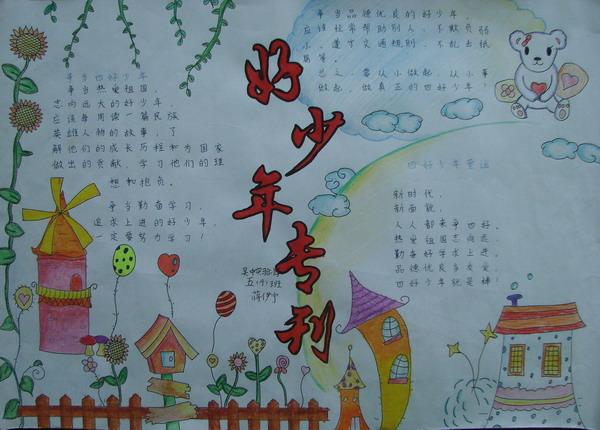 好少年专刊
争当四好少年
争当热爱祖国，
志向远大的好少年，
应该每周读一篇民族
英雄人物的故事，了
解他们的成长历程和为国家
做出的贡献，学习他们的理
想和抱负。
争当勤奋学习，
追求上进的好少年，
一定要努力学习！
争当品德优良的好少年，
应该经常帮助别人，不欺负弱
小，遵守交通规则，不乱丢纸
屑等。
总之，要从小做起，从小事
做起，做真正的四好少年！
四好少年童谣
新时代，
新面貌，
人人都来争四好。
热爱祖国志向远，
勤奋好学求上进。
品德优良多友爱，
四好少年就是棒！
五(1)班